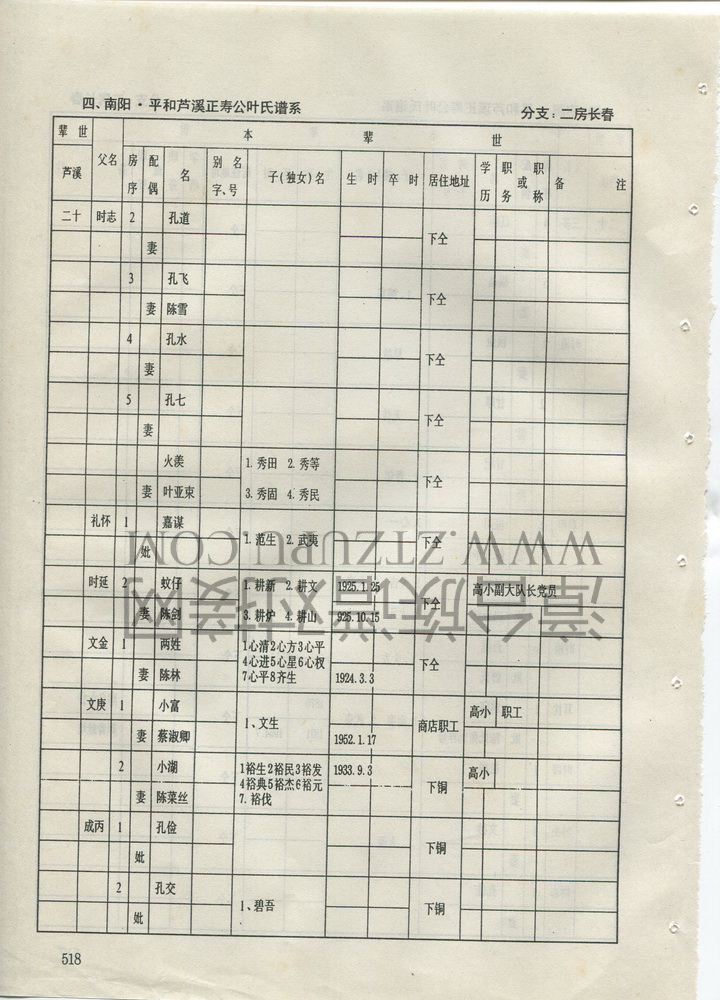 四、南阳·平和芦溪正寿公叶氏谱系 分支：二房长春
辈世 本辈世
芦溪 父名 房序 配偶 名 别名字、号 子(独女)名 生时 卒时 居住地址 学历 职务或职称 备注
二十 时志 2 孔道 下仝
妻
3 孔飞 下仝
妻 陈雪
4 孔水 下仝
妻
5 孔七 下仝
妻
火羡 1.秀田 2.秀等 下仝
妻 叶亚束 3.秀固 4.秀民
礼怀 1 嘉谋 1.范生 2.武夷 下仝
妣
时延 2 蚊仔 1.耕新 2.耕文 1925.1.25 下仝 高小副大队长党员
妻 陈剑 3.耕炉 4.耕山 925.10.15
文金 1 两姓 1心清2心方3心平 下仝
4心进5心星6心权
妻 陈林 7心平8齐生 1924.3.3
文庚 1 小富 1、文生 商店职工 高小 职工
妻 蔡淑卿 1952.1.17
2 小湖 1裕生2裕民3裕发 1933.9.3 下铜 高小
4裕典5裕杰6裕元
妻 陈菜丝 7.裕伐
成丙 1 孔俭 下铜
妣
2 孔交 1、碧吾 下铜
妣
518
漳台族谱对接网
WWW.ZTZUPU.COM